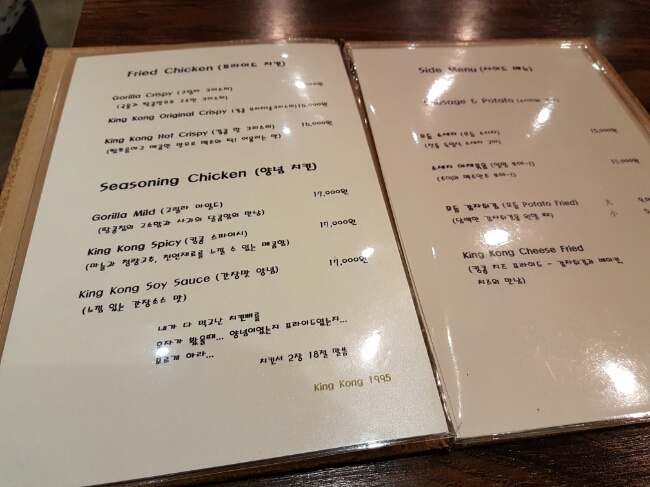 Fried Chicken (프라이드 치킨)
Gorilla Crispy (고릴라 크리스피)
King Kong Original Crispy (킹콩 오리지널크리스피) 16,000원
King Kong Hot Crispy (킹콩 핫 크리스피) 16,000원
Seasoning Chicken (양념 치킨)
Gorilla Mild (고릴라 마일드) 17,000원
(땅콩잼의 고소함과 사과의 달콤함의 만남)
King Kong Spicy (킹콩 스파이시) 17,000원
(마늘과 청량고추, 천연재료를 느낄 수 있는 매콤함)
King Kong Soy Sauce (간장맛 양념) 17,000원
(느낌 있는 간장소스 맛)
내가 다 먹고난 치킨뼈를
혼자가 봤을때... 양념이었는지 프라이드였는지...
모르게 하라...
치킨서 2장 18절 말씀
King Kong 1995
Side Menu (사이드 메뉴)
Sausage & Potato
모듬 소세지 (모듬 소세지) 15,000원
(정통 독일식 소세지 구이)
소세지 야채볶음
모듬 감자튀김 (모듬 Potato Fried) 大
(담백한 감자튀김을 원할 때) 小
King Kong Cheese Fried
(킹콩 치즈 프라이드 - 감자튀김과 베이컨,
치즈의 만남)